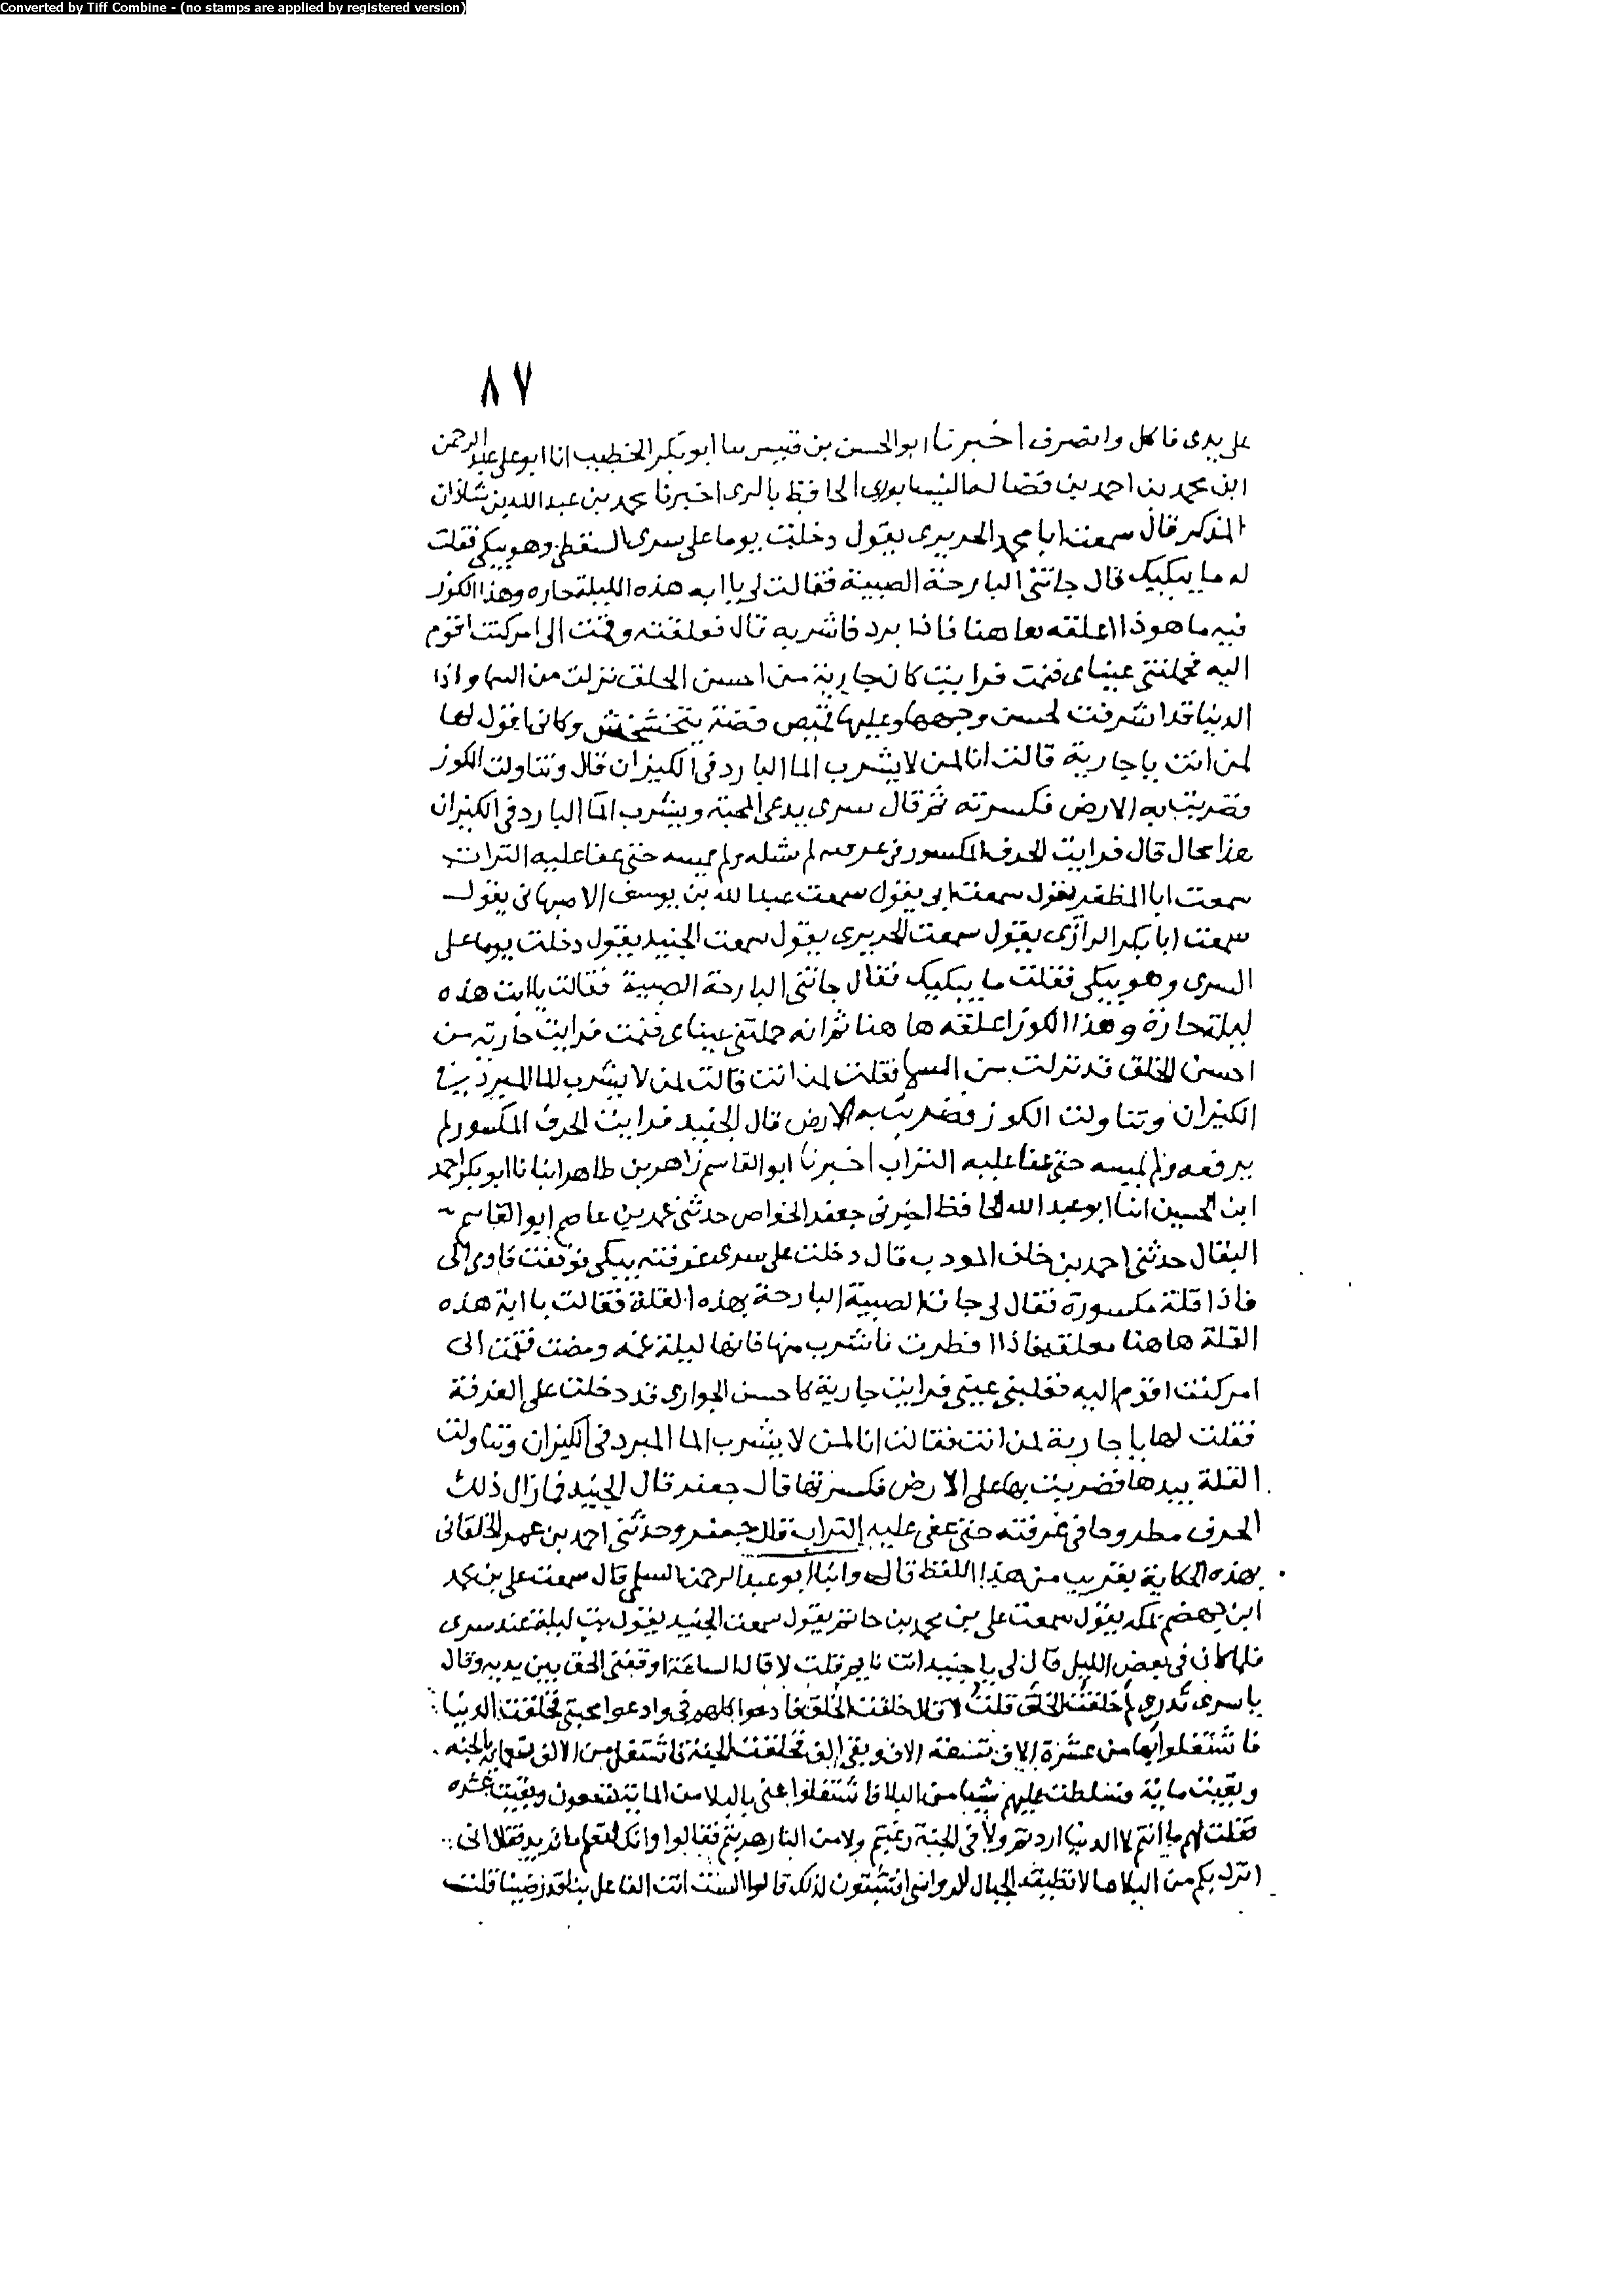 Converted by Tiff Combine - (no stamps are applied by registered version)
٨٧
على يدى فاكل وانصرف اخبرنا ابوالحسن بن قبيس سا ابو بكر الخطيب انا ابو على عبد الرحمن
ابن محمد بن احمد بن فضاله النيسابورى الحافظ بالرى اخبرنا محمد بن عبد الله بن شاذان
المذكر قال سمعت ابا محمد الحريرى يقول دخلت يوما على سرى السقطى وهو يبكى فقلت
له ما يبكيك قال جاتنى البارحة الصبية فقالت لى يا ابه هذه الليلة حاره وهذا الكوز
فيه ما هوذا اعلقه لها هنا فاذا برد فاشربه قال فعلقته وقمت الى امر كنت اقوم
اليه فحملتنى عيناى فنمت فرايت كان جارية من احسن الخلق نزلت من السما واذا
الدنيا قد اشرقت لحسن وجهها وعليها قميص فضة يتخشخش وكانى اقول لها
لمن انت يا جارية قالت انا لمن لا يشرب الما البارد فى الكيزان قال وتناولت الكوز
وضربت به الارض فكسرته ثم قال سرى يدعى المحبة ويشرب الما البارد فى الكيزان
هذا محال قال فرايت الخزف المكسور فى غرفته لم يشله ولم يمسه حتى عفا عليه التراب
سمعت ابا المظفر يقول سمعت ابى يقول سمعت عبد الله بن يوسف الاصبهانى يقول
سمعت ابا بكر الرازى يقول سمعت الحريرى يقول سمعت الجنيد يقول دخلت يوما على
السرى وهو يبكى فقلت ما يبكيك فقال جاتنى البارحة الصبية فقالت يا ابت هذه
ليلة حارة وهذا الكوز اعلقه ها هنا ثم انه حملتنى عيناى فنمت فرايت جاريه من
احسن الخلق قد نزلت من السما فقلت لمن انت قالت لمن لا يشرب الما المبرد فى
الكيزان وتناولت الكوز فضربت به الارض قال الجنيد فرايت الخزف المكسور لم
يرفعه ولم يمسه حتى عفا عليه التراب اخبرنا ابو القاسم زاهر بن طاهر انبانا ابو بكر احمد
ابن الحسين انبا ابو عبد الله الحافظ اخبرنى جعفر الخواص حدثنى عمر بن عاصم ابو القاسم
البقال حدثنى احمد بن خلف المودب قال دخلت على سرى غرفته يبكى فوقفت فاومى الى
فاذا قلة مكسورة فقال لى جات الصبية البارحة بهذه القلة فقالت يا ابة هذه
القلة ها هنا معلقة فاذا افطرت فاشرب منها فانها ليلة غمه ومضت فقمت الى
امر كنت اقوم اليه فغلبنى عينى فرايت جارية كاحسن الجوارى قد دخلت على الغرفة
فقلت لها يا جارية لمن انت فقالت انا لمن لا يشرب الما المبرد فى الكيزان وتناولت
القلة بيدها فضربت بها على الارض فكسرتها قال جعفر قال الجنيد فما زال ذلك
الخزف مطروحا فى غرفته حتى عفى عليه التراب قال جعفر وحدثنى احمد بن عمر الخلقانى
بهذه الحكاية بقريب من هذا اللفظ قال وانبا ابو عبد الرحمن السلمى قال سمعت على بن محمد
ابن جهضم بمكه يقول سمعت على بن محمد بن حاتم يقول سمعت الجنيد يقول بت ليلة عند سرى
فلما كان فى بعض الليل قال لى يا جنيد انت نايم قلت لا قال الساعة اوقفنى الحق بين يديه وقال
يا سرى تدرى لم خلقت الخلق قلت لا قال خلقت الخلق فادعوا كلهم فى وادعوا محبتى فخلقت الدنيا
فاشتغلوا بها من عشرة الاف تسعة الاف وبقى الف فخلقت الجنة فاشتغل من الالف تسعمايه بالجنه
وبقيت ماية فسلطت عليهم شيا من البلا فاشتغلوا عنى بالبلا من الماية تسعون وبقيت عشره
فقلت لهم ما انتم لا الدنيا اردتم ولا فى الجنة رغبتم ولا من النار هربتم فقالوا وانك لتعلم ما نريد فقال انى
انزل بكم من البلا ما لا تطيقه الجبال الرواسى اتثبتون لذلك قالوا الست انت الفاعل بنا قد رضينا قلت